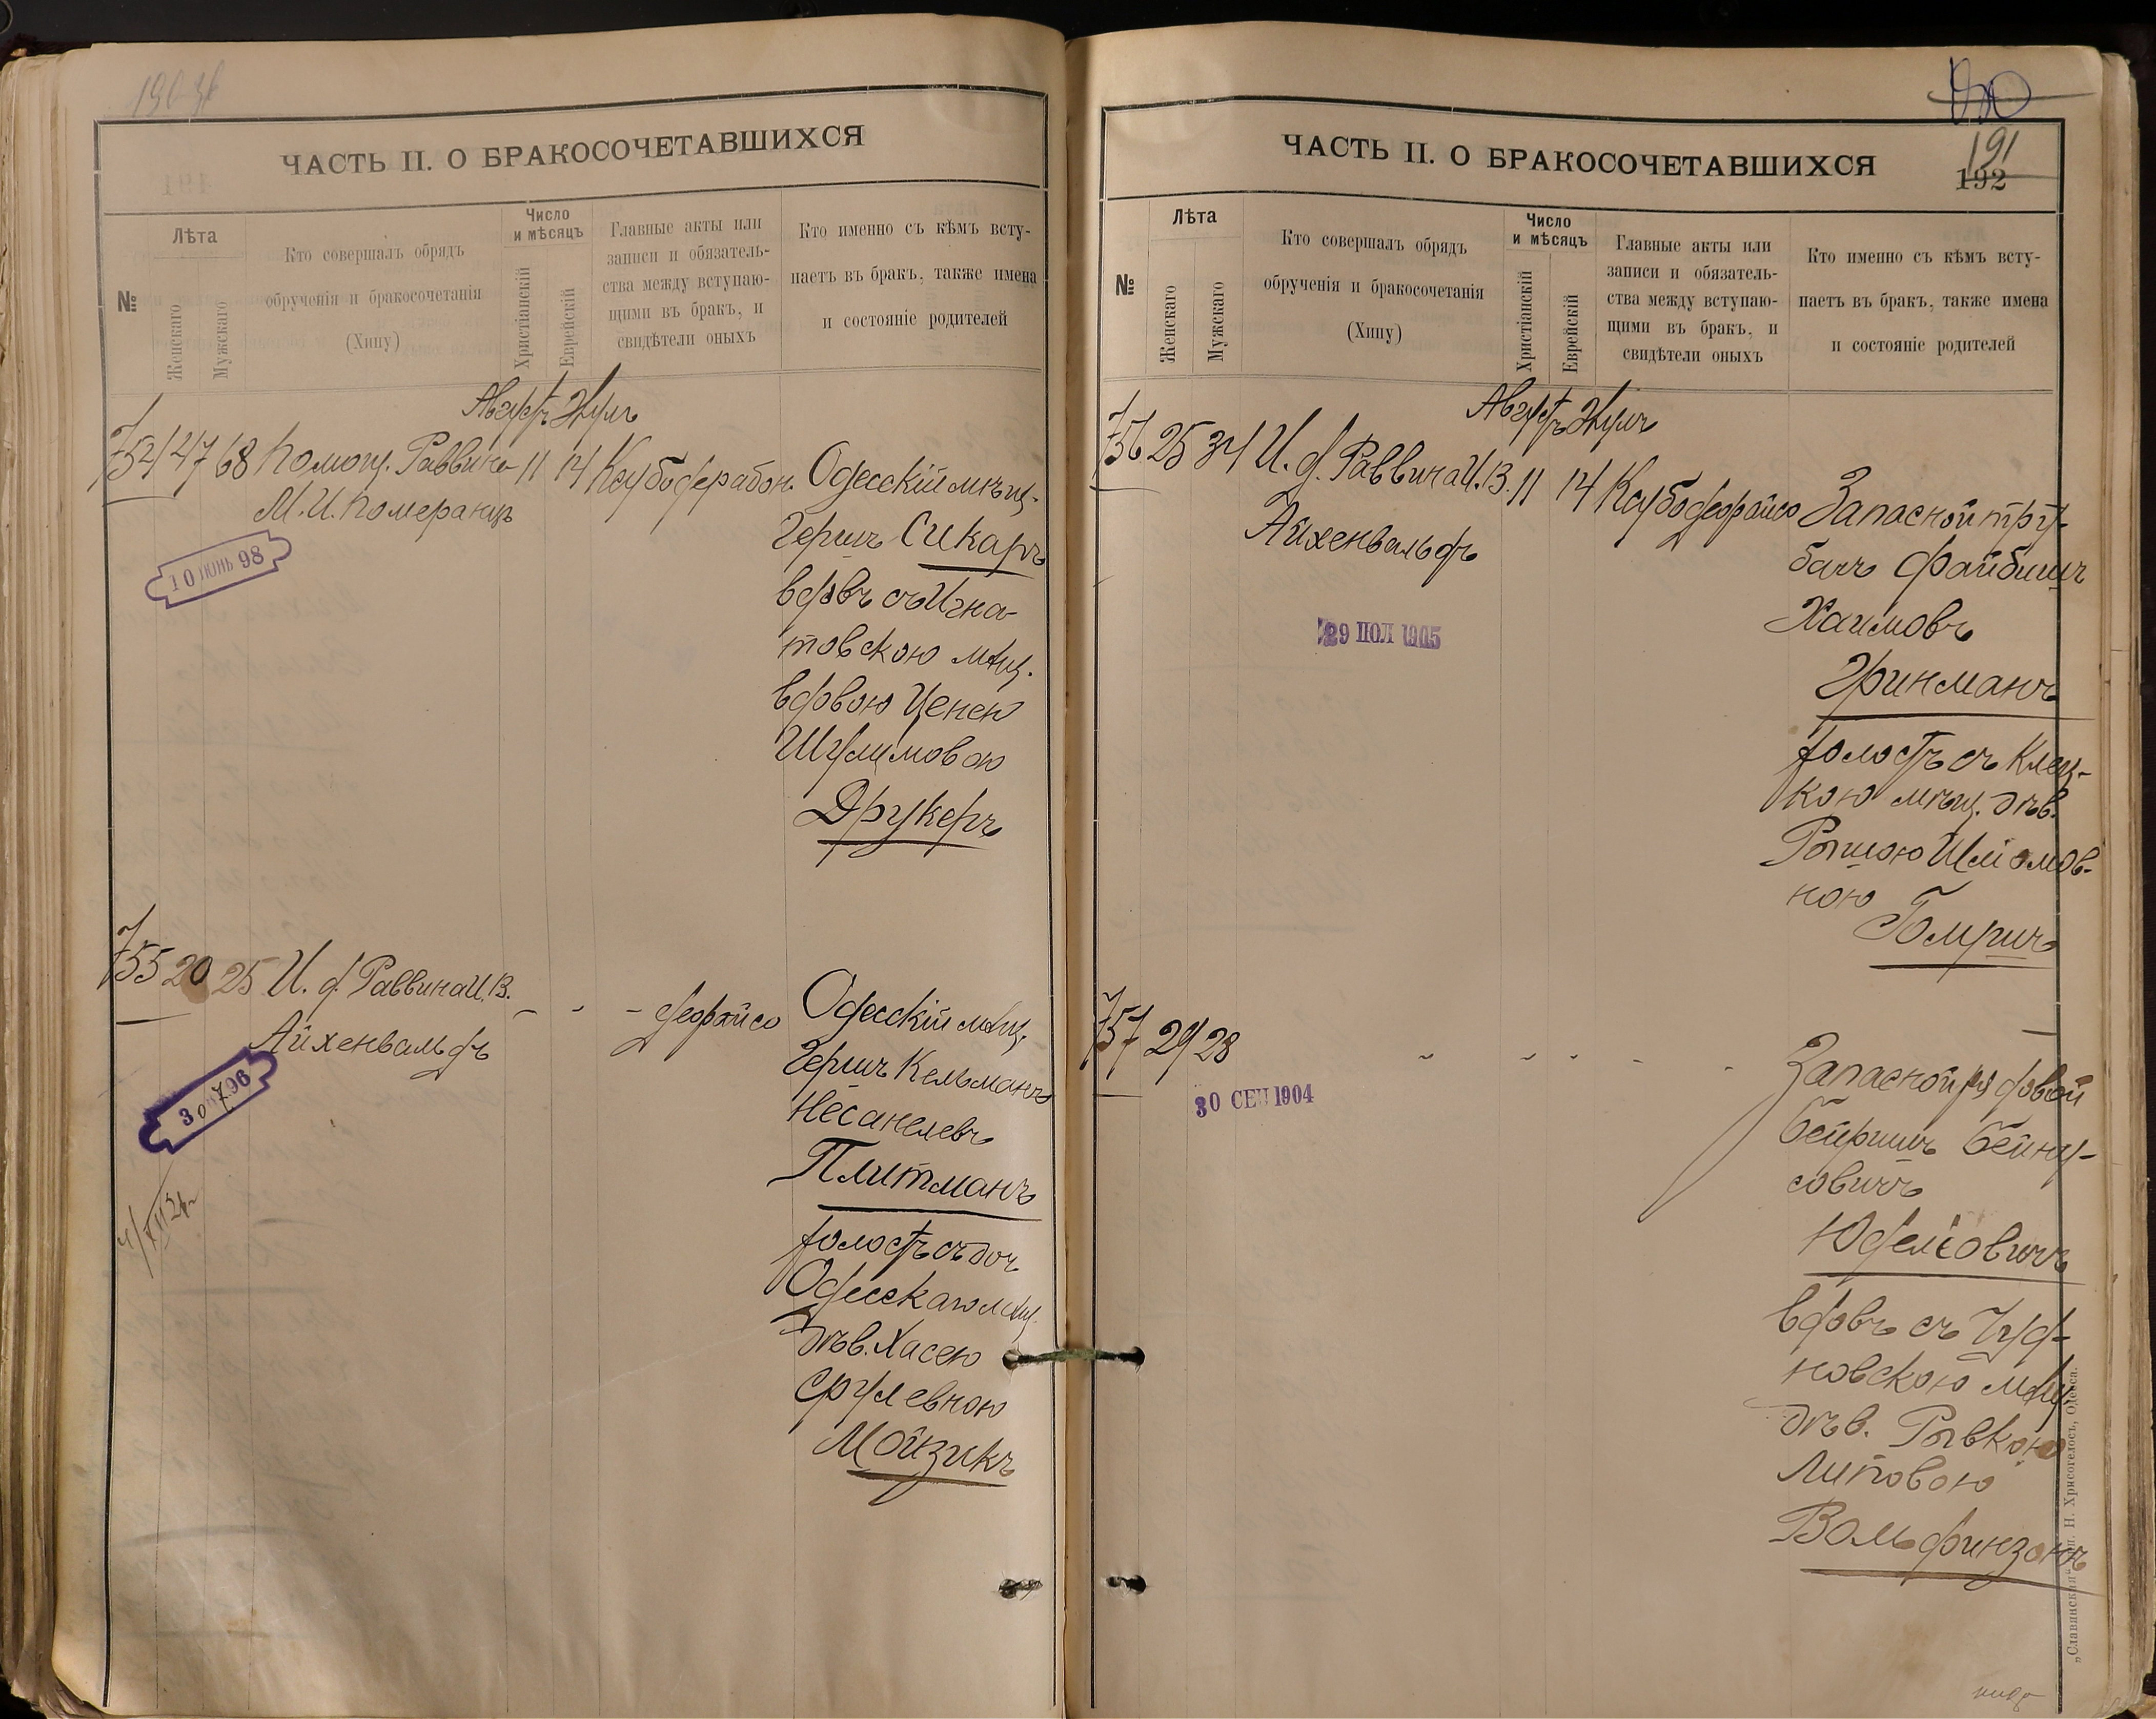 ЧАСТЬ II. О БРАКОСОЧЕТАВШИХСЯ
№
Лѣта
Женскаго
Мужскаго
Кто совершалъ обрядъ
обрученія и бракосочетанія
(Хипу)
Число
и мѣсяцъ
Христіанскій
Еврейскій
Главные акты или
записи и обязатель-
ства между вступаю-
щими въ бракъ, и
свидѣтели оныхъ
Кто именно съ кѣмъ всту-
паетъ въ бракъ, также имена
и состояніе родителей
Августъ
754 47 68 Помощ. Раввина 11 14
М. И. Померанцъ
10 ІЮНЬ 98
Одесскій мѣщ.
Гершъ Сикаръ
вдовъ съ Игна-
товскою мѣщ.
вдовою Ценею
Шулимовою
Друкеръ
755 20 25 И. д. Раввина И. В. - - -
Айхенвальдъ
30 7 96
Одесскій мѣщ.
Гершъ Кельманъ
Несанелевъ
Плитманъ
холостъ съ доч
Одесскаго мѣщ.
дѣв. Хасею
Срулевною
Мойзикъ
ЧАСТЬ II. О БРАКОСОЧЕТАВШИХСЯ
191
192
№
Лѣта
Женскаго
Мужскаго
Кто совершалъ обрядъ
обрученія и бракосочетанія
(Хипу)
Число
и мѣсяцъ
Христіанскій
Еврейскій
Главные акты или
записи и обязатель-
ства между вступаю-
щими въ бракъ, и
свидѣтели оныхъ
Кто именно съ кѣмъ всту-
паетъ въ бракъ, также имена
и состояніе родителей
Августъ
756 25 34 И. д. Раввина И. В. 11 14
Айхенвальдъ
29 ІЮЛ 1905
Запасной тру-
бачъ Файбишъ
Хаимовъ
Гринманъ
холостъ съ Клец-
кою мѣщ. дѣв.
Рысею Шлiомов-
ною
Гомришъ
757 29 28 - - - - -
30 СЕН 1904
Запасной рядовой
Бейришъ Бейну-
совичъ
Юделiовичъ
вдовъ съ Чуд-
новскою мѣщ.
дѣв. Рывкою
Липовою
Вольфинзонъ
„Славянская“ тип. Н. Хрисогелосъ, Одесса.